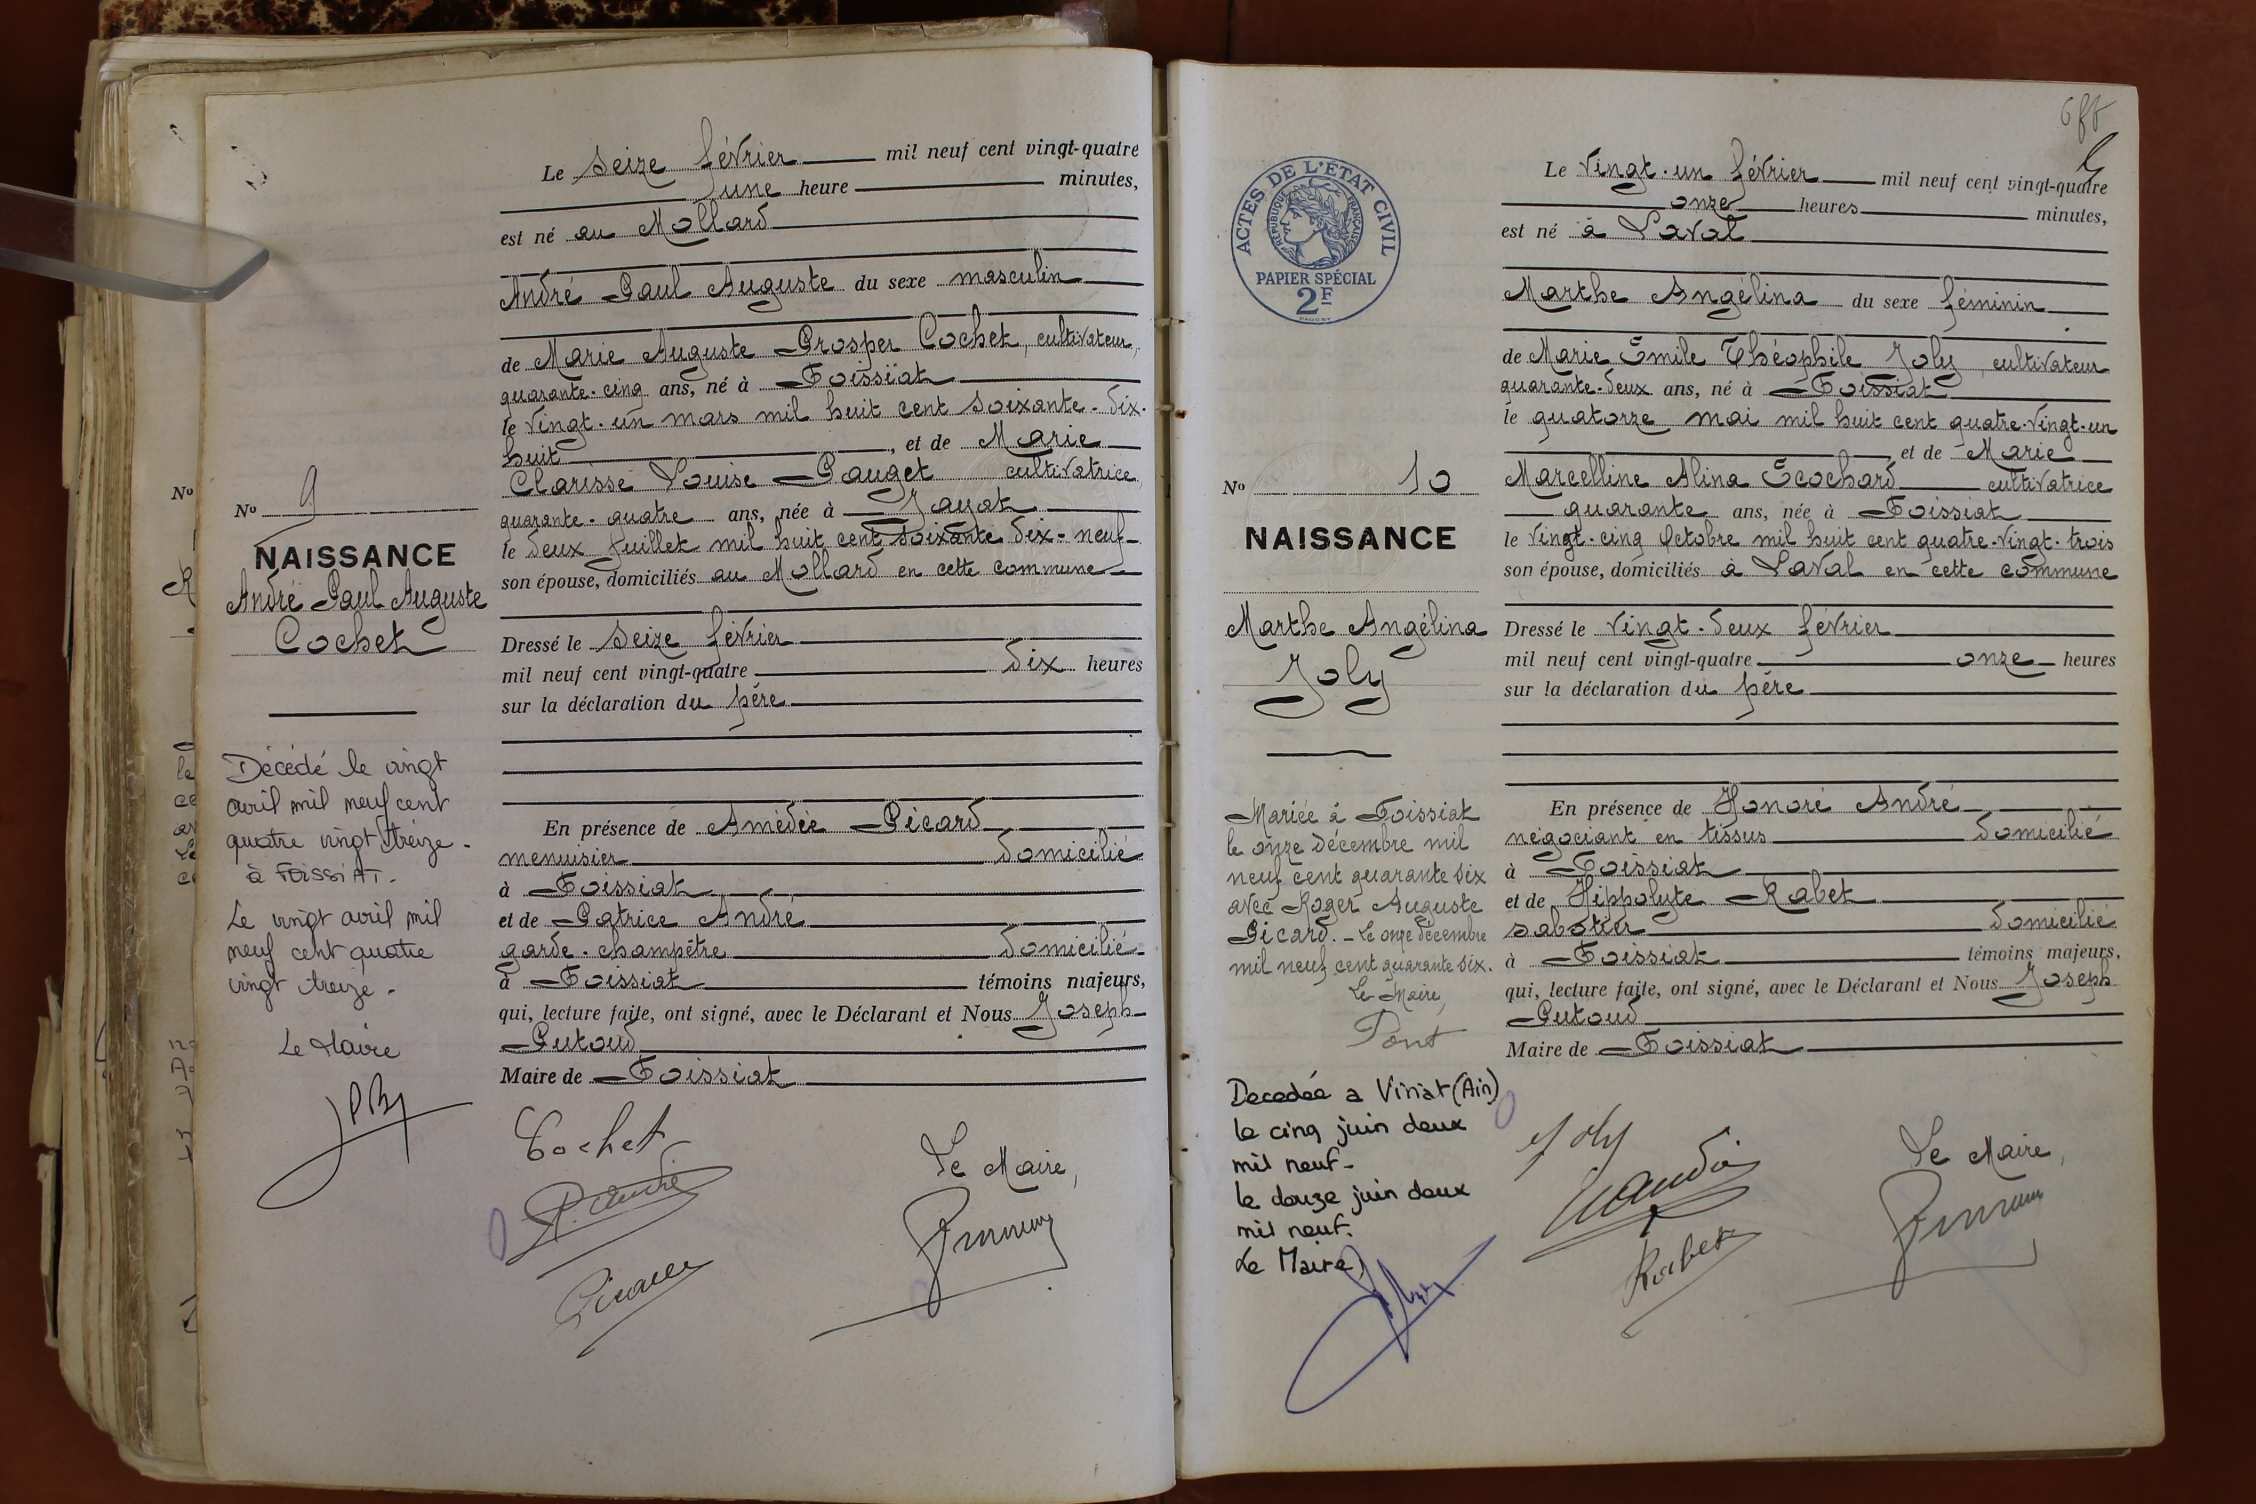 Le seize février mil neuf cent vingt-quatre
une heure minutes,
est né au Mollard
André Paul Auguste du sexe masculin
de Marie Auguste Prosper Cochet, cultivateur,
quarante-cinq ans, né à Foissiat
le vingt-un mars mil huit cent soixante-dix-
huit, et de Marie
Clarisse Louise Pauget cultivatrice
quarante-quatre ans, née à Jayat
le deux juillet mil huit cent soixante dix-neuf
son épouse, domiciliés au Mollard en cette commune
Dressé le seize février
mil neuf cent vingt-quatre dix heures
sur la déclaration du père
En présence de Amédée Picard
menuisier domicilié
à Foissiat
et de Patrice André
garde-champêtre domicilié
à Foissiat témoins majeurs,
qui, lecture faite, ont signé, avec le Déclarant et Nous Joseph
Putoud
Maire de Foissiat
Cochet
P. André
Picard
Le Maire,
No
No 9
NAISSANCE
André Paul Auguste
Cochet
Décédé le vingt
avril mil neuf cent
quatre vingt treize -
à FOISSIAT -
Le vingt avril mil
neuf cent quatre
vingt treize -
Le Maire
ACTES DE L'ÉTAT CIVIL
RÉPUBLIQUE FRANÇAISE
PAPIER SPÉCIAL
2F
No 10
NAISSANCE
Marthe Angélina
Joly
Mariée à Foissiat
le onze décembre mil
neuf cent quarante six
avec Roger Auguste
Picard. - Le onze décembre
mil neuf cent quarante six.
Le Maire,
Pont
Decedée a Viriat (Ain)
le cinq juin deux
mil neuf -
le douze juin deux
mil neuf.
Le Maire,
Le vingt-un février mil neuf cent vingt-quatre
onze heures minutes,
est né à Laval
Marthe Angélina du sexe féminin
de Marie Émile Théophile Joly, cultivateur
quarante-deux ans, né à Foissiat
le quatorze mai mil huit cent quatre-vingt-un
et de Marie
Marcelline Alina Écochard cultivatrice
quarante ans, née à Foissiat
le vingt-cinq octobre mil huit cent quatre-vingt-trois
son épouse, domiciliés à Laval en cette commune
Dressé le vingt-deux février
mil neuf cent vingt-quatre onze heures
sur la déclaration du père
En présence de Honoré André
négociant en tissus domicilié
à Foissiat
et de Hippolyte Rabet
sabotier domicilié
à Foissiat témoins majeurs,
qui, lecture faite, ont signé, avec le Déclarant et Nous Joseph
Putoud
Maire de Foissiat
Joly
Rabet
Le Maire,